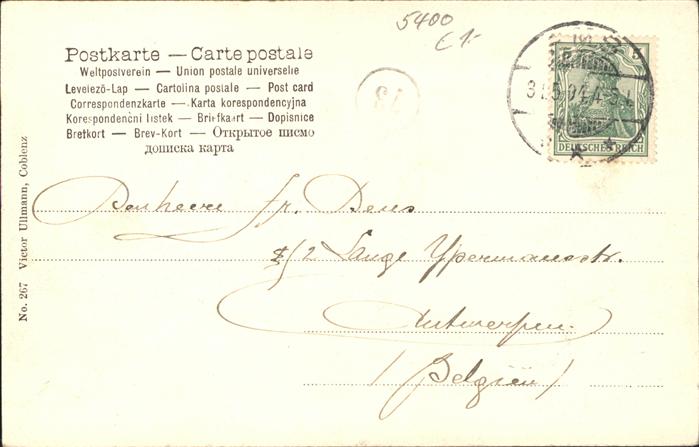 5400
€ 1.-
Postkarte — Carte postale
Weltpostverein — Union postale universelle
Levelező-Lap — Cartolina postale — Post card
Correspondenzkarte — Karta korespondencyjna
Korespondenční listek — Briefkaart — Dopisnice
Brefkort — Brev-Kort — Открытое письмо
дописка карта
5 5
DEUTSCHES REICH
31.5.04. 4-5
13
Fr. Dens
2 Lange Ypermanstr.
Antwerpen.
(Belgien)
No. 267 Victor Ullmann, Coblenz